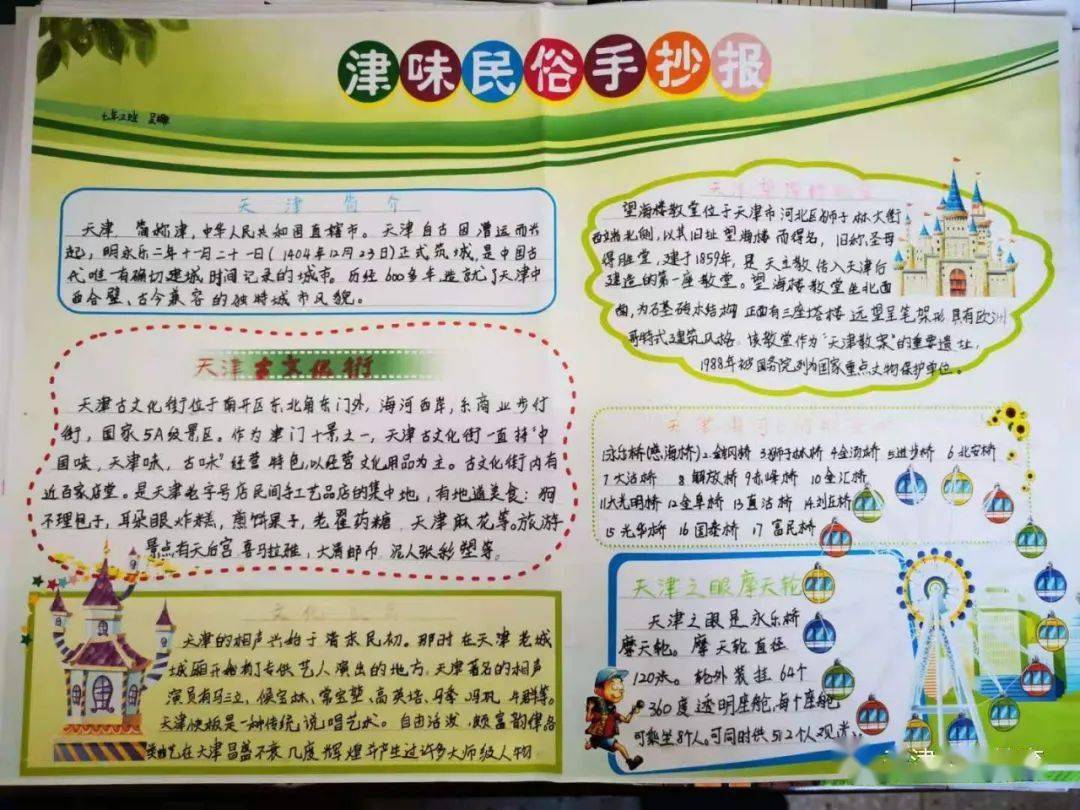 津味民俗手抄报
七年二班
天津简介
天津,简称津,中华人民共和国直辖市。天津自古因漕运而兴
起,明永乐二年十一月二十一日(1404年12月23日)正式筑城,是中国古
代唯一有确切建城时间记录的城市。历经600多年造就了天津中
西合璧、古今兼容的独特城市风貌。
天津古文化街
天津古文化街位于南开区东北角东门外,海河西岸,系商业步行
街,国家5A级景区。作为津门十景之一,天津古文化街一直持"中
国味,天津味,古味"经营特色,以经营文化用品为主。古文化街内有
近百家店堂。是天津老字号店民间手工艺品店的集中地,有地道美食:狗
不理包子,耳朵眼炸糕,煎饼果子,老翟药糖,天津麻花等。旅游
景点有天后宫 喜马拉雅,大清邮币,泥人张彩塑等。
文化
天津的相声兴始于清末民初。那时在天津老城
城厢开始有了专供艺人演出的地方。天津著名的相声
演员有马三立,侯宝林、常宝堃、高英培、马季、冯巩、牛群等。
天津快板是一种传统,说唱艺术。自由活泼,颇富韵律
曲艺在天津昌盛不衰几度辉煌并产生过许多大师级人物
望海楼教堂位于天津市河北区狮子林大街
西端北侧,以其旧址望海楼而得名,旧称圣母
得胜堂,建于1859年,是天主教传入天津后
建造的第一座教堂。望海楼教堂坐北面
南,为石基砖木结构 正面有三座塔楼 远望呈笔架形 具有欧洲
哥特式建筑风格,该教堂作为"天津教案"的重要遗址,
1988年被国务院列为国家重点文物保护单位。
1永乐桥(慈海桥) 2金钢桥 3狮子林桥 4金汤桥 5进步桥 6北安桥
7大沽桥 8解放桥 9赤峰桥 10金汇桥
11大光明桥 12金阜桥 13直沽桥 14刘庄桥
15光华桥 16国泰桥 17富民桥
天津之眼摩天轮
天津之眼是永乐桥
摩天轮。摩天轮直径
120米。轮外装挂64个
360度透明座舱,每个座舱
可乘坐8个人。可同时供512个人观光